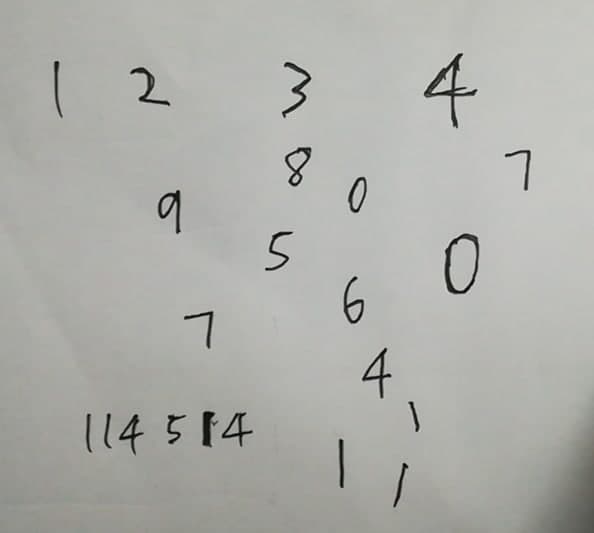 1 2 3 4
8 7
9 0
5 0
7 6
4
1
114514
1 1